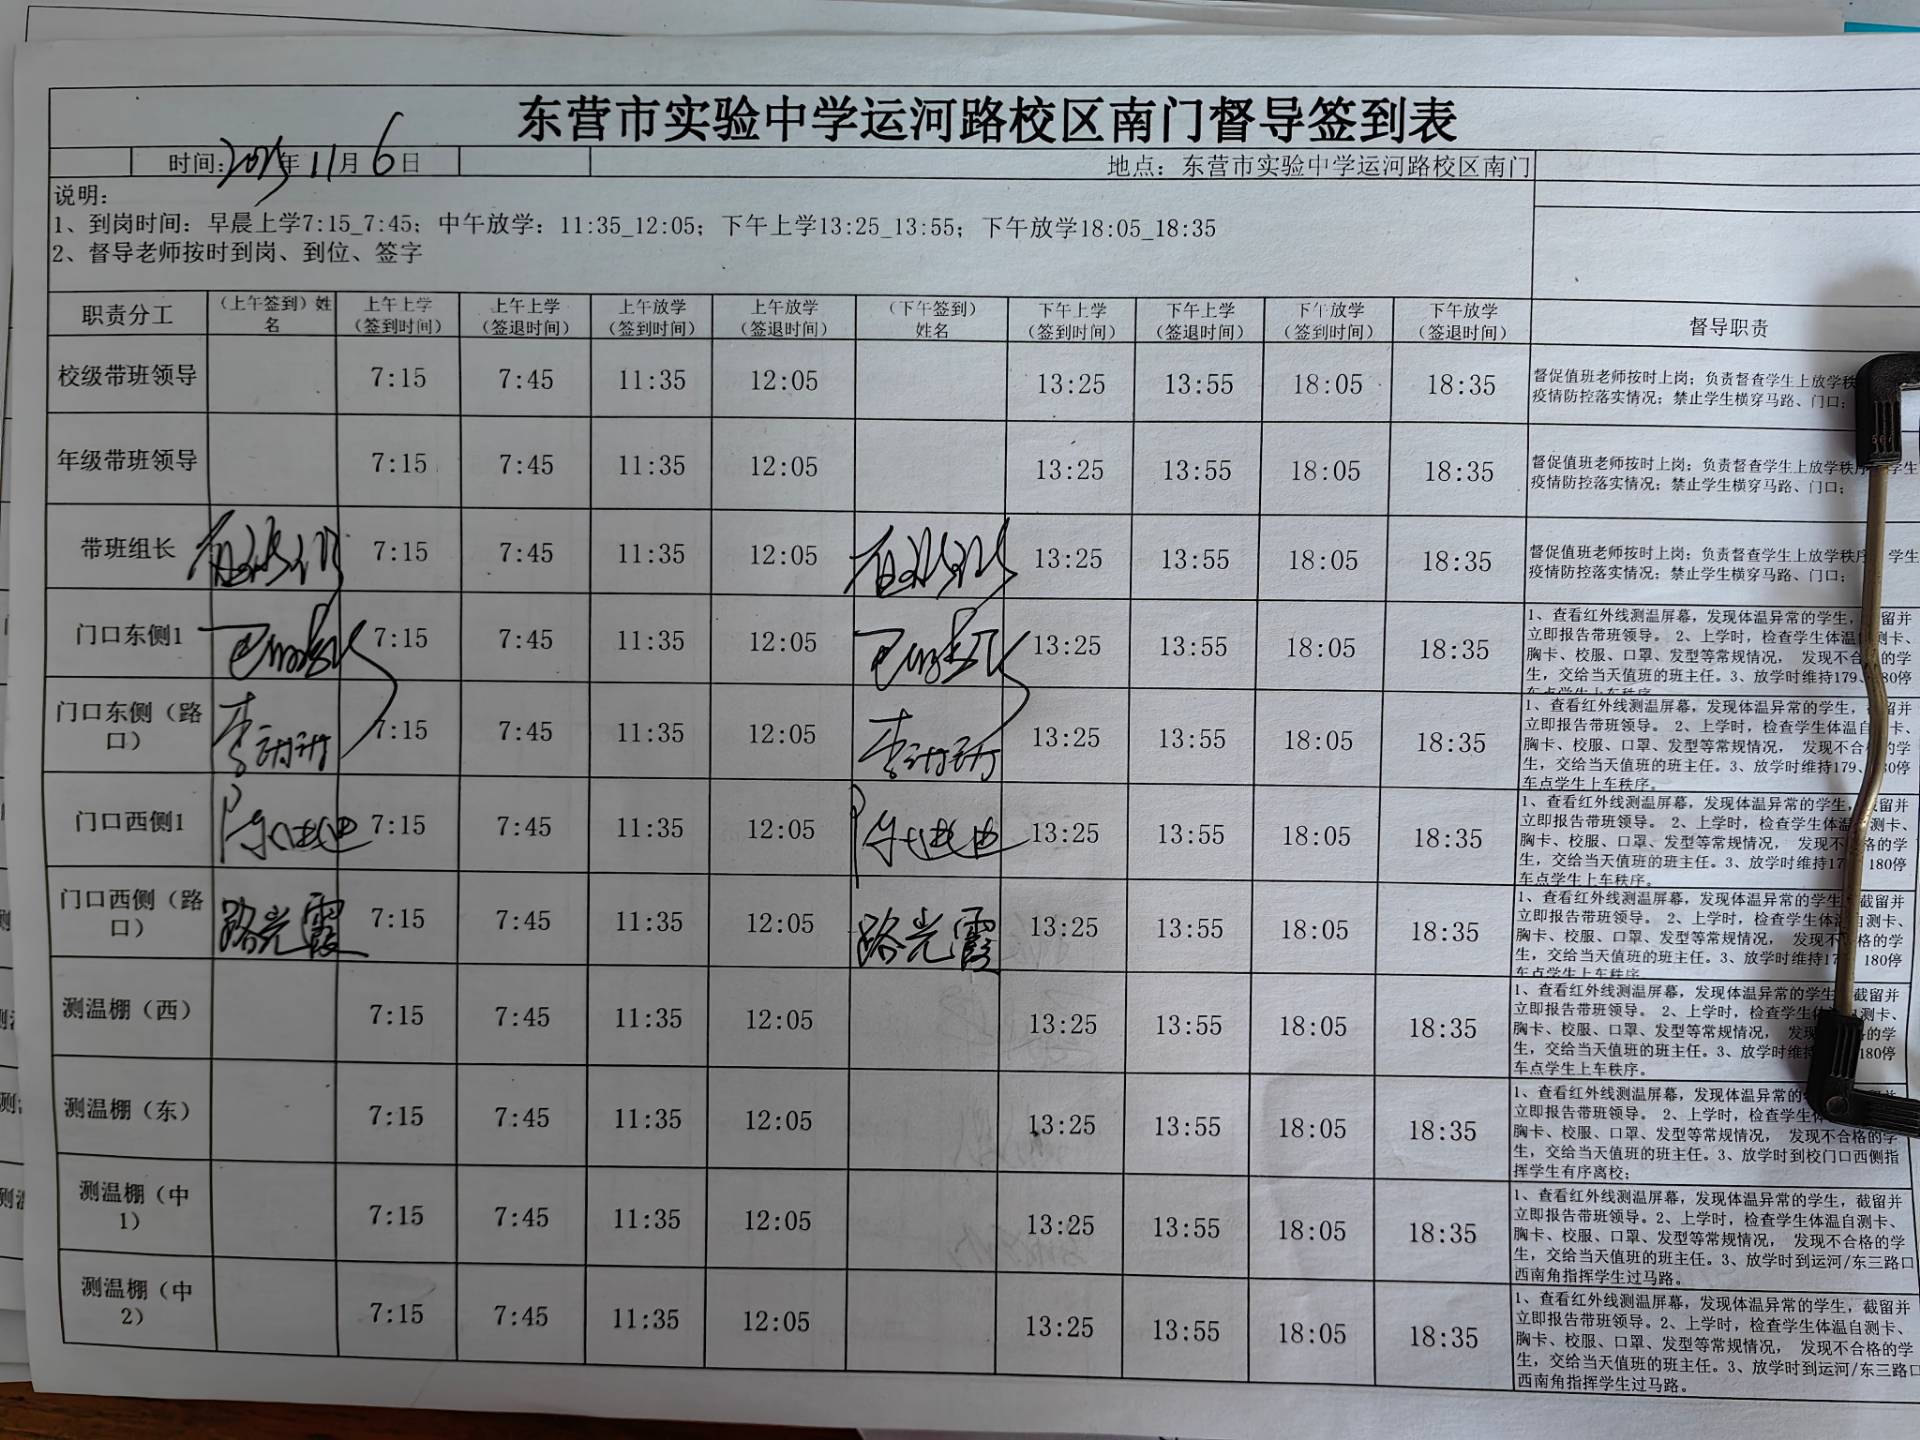 东营市实验中学运河路校区南门督导签到表
时间:2025年11月6日
地点：东营市实验中学运河路校区南门
说明：
1、到岗时间：早晨上学7:15_7:45；中午放学：11:35_12:05；下午上学13:25_13:55；下午放学18:05_18:35
2、督导老师按时到岗、到位、签字
职责分工 （上午签到）姓名 上午上学（签到时间） 上午上学（签退时间） 上午放学（签到时间） 上午放学（签退时间） （下午签到）姓名 下午上学（签到时间） 下午上学（签退时间） 下午放学（签到时间） 下午放学（签退时间） 督导职责
校级带班领导 7:15 7:45 11:35 12:05 13:25 13:55 18:05 18:35
督促值班老师按时上岗；负责督查学生上放学秩
疫情防控落实情况；禁止学生横穿马路、门口；
年级带班领导 7:15 7:45 11:35 12:05 13:25 13:55 18:05 18:35
督促值班老师按时上岗；负责督查学生上放学秩序 学生
疫情防控落实情况；禁止学生横穿马路、门口；
带班组长 7:15 7:45 11:35 12:05 13:25 13:55 18:05 18:35
督促值班老师按时上岗；负责督查学生上放学秩序 学生
疫情防控落实情况；禁止学生横穿马路、门口；
门口东侧1 7:15 7:45 11:35 12:05 13:25 13:55 18:05 18:35
1、查看红外线测温屏幕，发现体温异常的学生， 留并
立即报告带班领导。 2、上学时，检查学生体温自测卡、
胸卡、校服、口罩、发型等常规情况， 发现不合格的学
生，交给当天值班的班主任。3、放学时维持179、180停
车点学生上车秩序。
门口东侧（路口） 李 7:15 7:45 11:35 12:05 李 13:25 13:55 18:05 18:35
1、查看红外线测温屏幕，发现体温异常的学生， 留并
立即报告带班领导。 2、上学时，检查学生体温自 卡、
胸卡、校服、口罩、发型等常规情况， 发现不合格的学
生，交给当天值班的班主任。3、放学时维持179、 80停
车点学生上车秩序。
门口西侧1 陈 7:15 7:45 11:35 12:05 陈 13:25 13:55 18:05 18:35
1、查看红外线测温屏幕，发现体温异常的学生，截留并
立即报告带班领导。 2、上学时，检查学生体温 测卡、
胸卡、校服、口罩、发型等常规情况， 发现不 格的学
生，交给当天值班的班主任。3、放学时维持17 180停
车点学生上车秩序。
门口西侧（路口） 路光霞 7:15 7:45 11:35 12:05 路光霞 13:25 13:55 18:05 18:35
1、查看红外线测温屏幕，发现体温异常的学生 截留并
立即报告带班领导。 2、上学时，检查学生体温自测卡、
胸卡、校服、口罩、发型等常规情况， 发现不 格的学
生，交给当天值班的班主任。3、放学时维持17 180停
车点学生上车秩序。
测温棚（西） 7:15 7:45 11:35 12:05 13:25 13:55 18:05 18:35
1、查看红外线测温屏幕，发现体温异常的学生 截留并
立即报告带班领导。 2、上学时，检查学生体温自测卡、
胸卡、校服、口罩、发型等常规情况， 发现 格的学
生，交给当天值班的班主任。3、放学时维持 180停
车点学生上车秩序。
测温棚（东） 7:15 7:45 11:35 12:05 13:25 13:55 18:05 18:35
1、查看红外线测温屏幕，发现体温异常的学 留并
立即报告带班领导。 2、上学时，检查学生体 测卡、
胸卡、校服、口罩、发型等常规情况， 发现不合格的学
生，交给当天值班的班主任。3、放学时到校门口西侧指
挥学生有序离校；
测温棚（中1） 7:15 7:45 11:35 12:05 13:25 13:55 18:05 18:35
1、查看红外线测温屏幕，发现体温异常的学生，截留并
立即报告带班领导。2、上学时，检查学生体温自测卡、
胸卡、校服、口罩、发型等常规情况， 发现不合格的学
生，交给当天值班的班主任。3、放学时到运河/东三路口
西南角指挥学生过马路。
测温棚（中2） 7:15 7:45 11:35 12:05 13:25 13:55 18:05 18:35
1、查看红外线测温屏幕，发现体温异常的学生，截留并
立即报告带班领导。2、上学时，检查学生体温自测卡、
胸卡、校服、口罩、发型等常规情况， 发现不合格的学
生，交给当天值班的班主任。3、放学时到运河/东三路口
西南角指挥学生过马路。